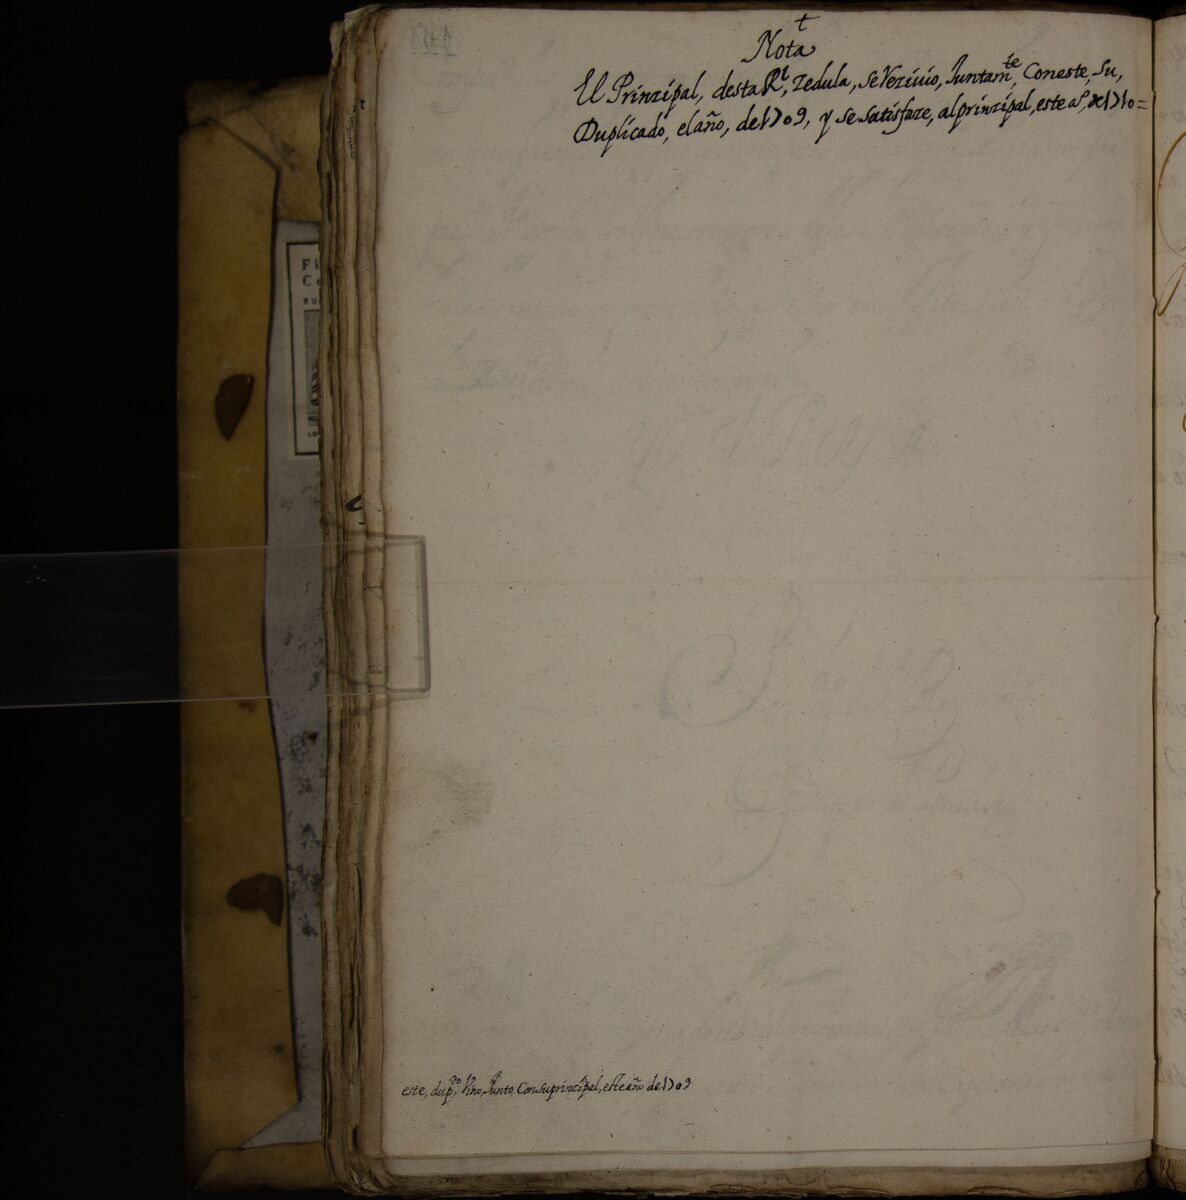 t
Nota
El Prinzipal, desta Rl, zedula, se rezivio, Juntamte, Con este, su,
Duplicado, el año, de 1709, y se satisfaze, al prinzipal, este aº, de 1710=
este, dupdo, Vino, Junto, Con su prinzipal, este año de 1709